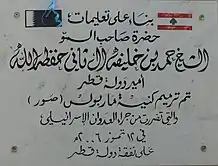 بناء على تعليمات
حضرة صاحب السمو
الشيخ حمد بن خليفه آل ثاني حفظه الله
أمير دولة قطر
تم ترميم كنيسة مار بولس (صور)
والتي تضررت من جراء العدوان الإسرائيلي
في ١٢ تموز ٢٠٠٦
على نفقة دولة قطر